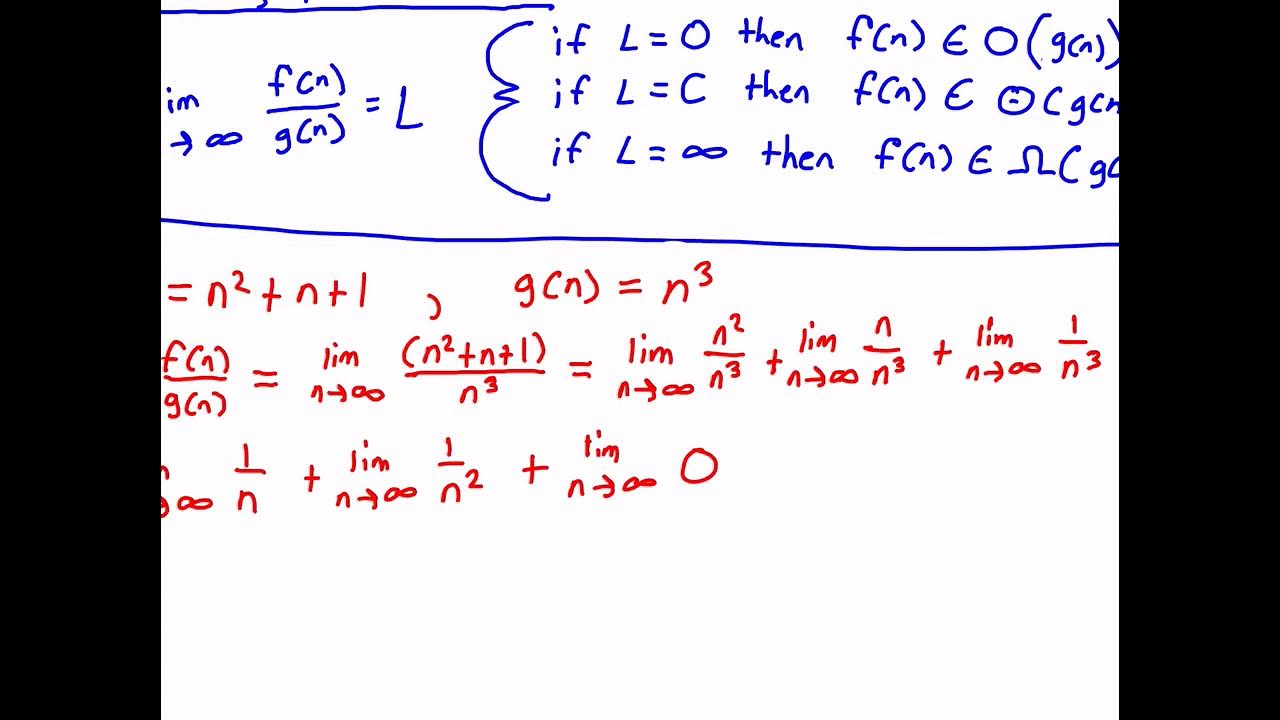 if L = 0 then f(n) ∈ O(g(n))
im n→∞ f(n)/g(n) = L
if L = C then f(n) ∈ Θ(g(n
if L = ∞ then f(n) ∈ Ω(g(
= n² + n + 1 , g(n) = n³
f(n)/g(n) = lim n→∞ (n²+n+1)/n³ = lim n→∞ n²/n³ + lim n→∞ n/n³ + lim n→∞ 1/n³
→∞ 1/n + lim n→∞ 1/n² + lim n→∞ 0